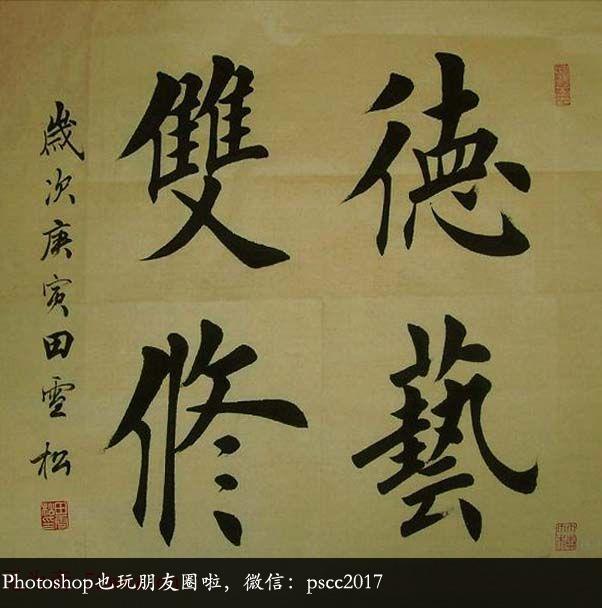 德藝
雙修
歲次庚寅田雪松
Photoshop也玩朋友圈啦，微信：pscc2017